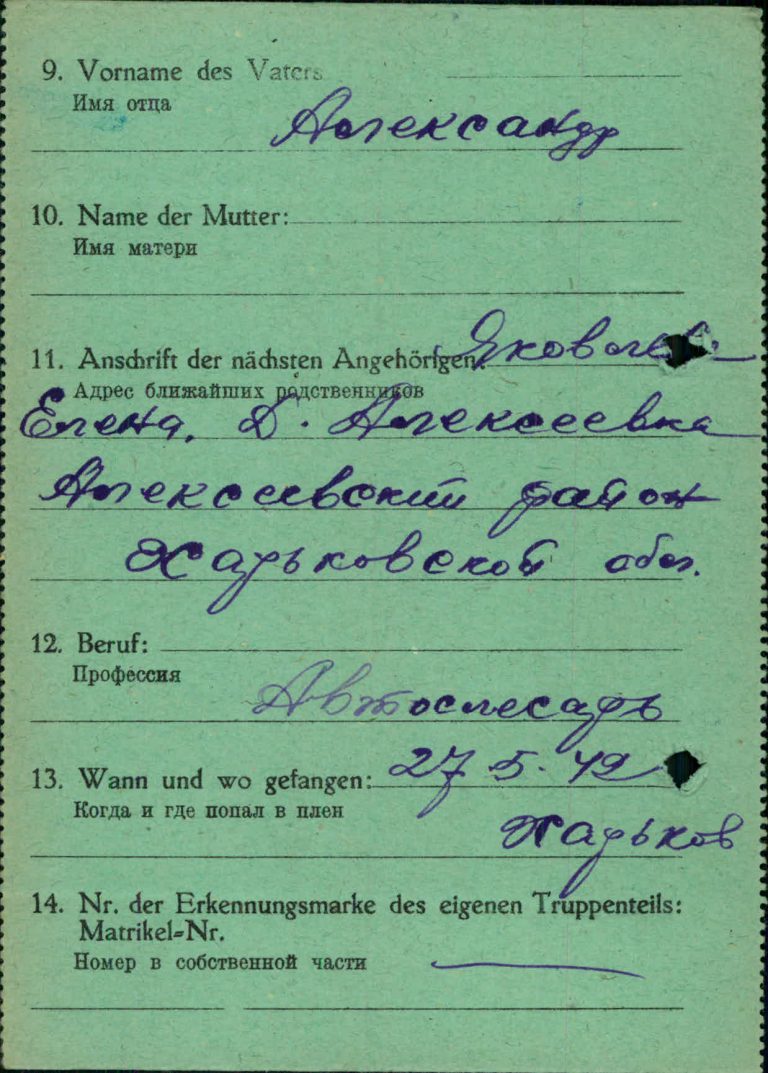 9. Vorname des Vaters
Имя отца
Александр
10. Name der Mutter:
Имя матери
11. Anschrift der nächsten Angehörigen:
Адрес ближайших родственников
Елена, д. Алексеевка
Алексеевский район
Харьковской обл.
12. Beruf:
Профессия
Автослесарь
13. Wann und wo gefangen: 27.5.42
Когда и где попал в плен
Харьков
14. Nr. der Erkennungsmarke des eigenen Truppenteils:
Matrikel-Nr.
Номер в собственной части